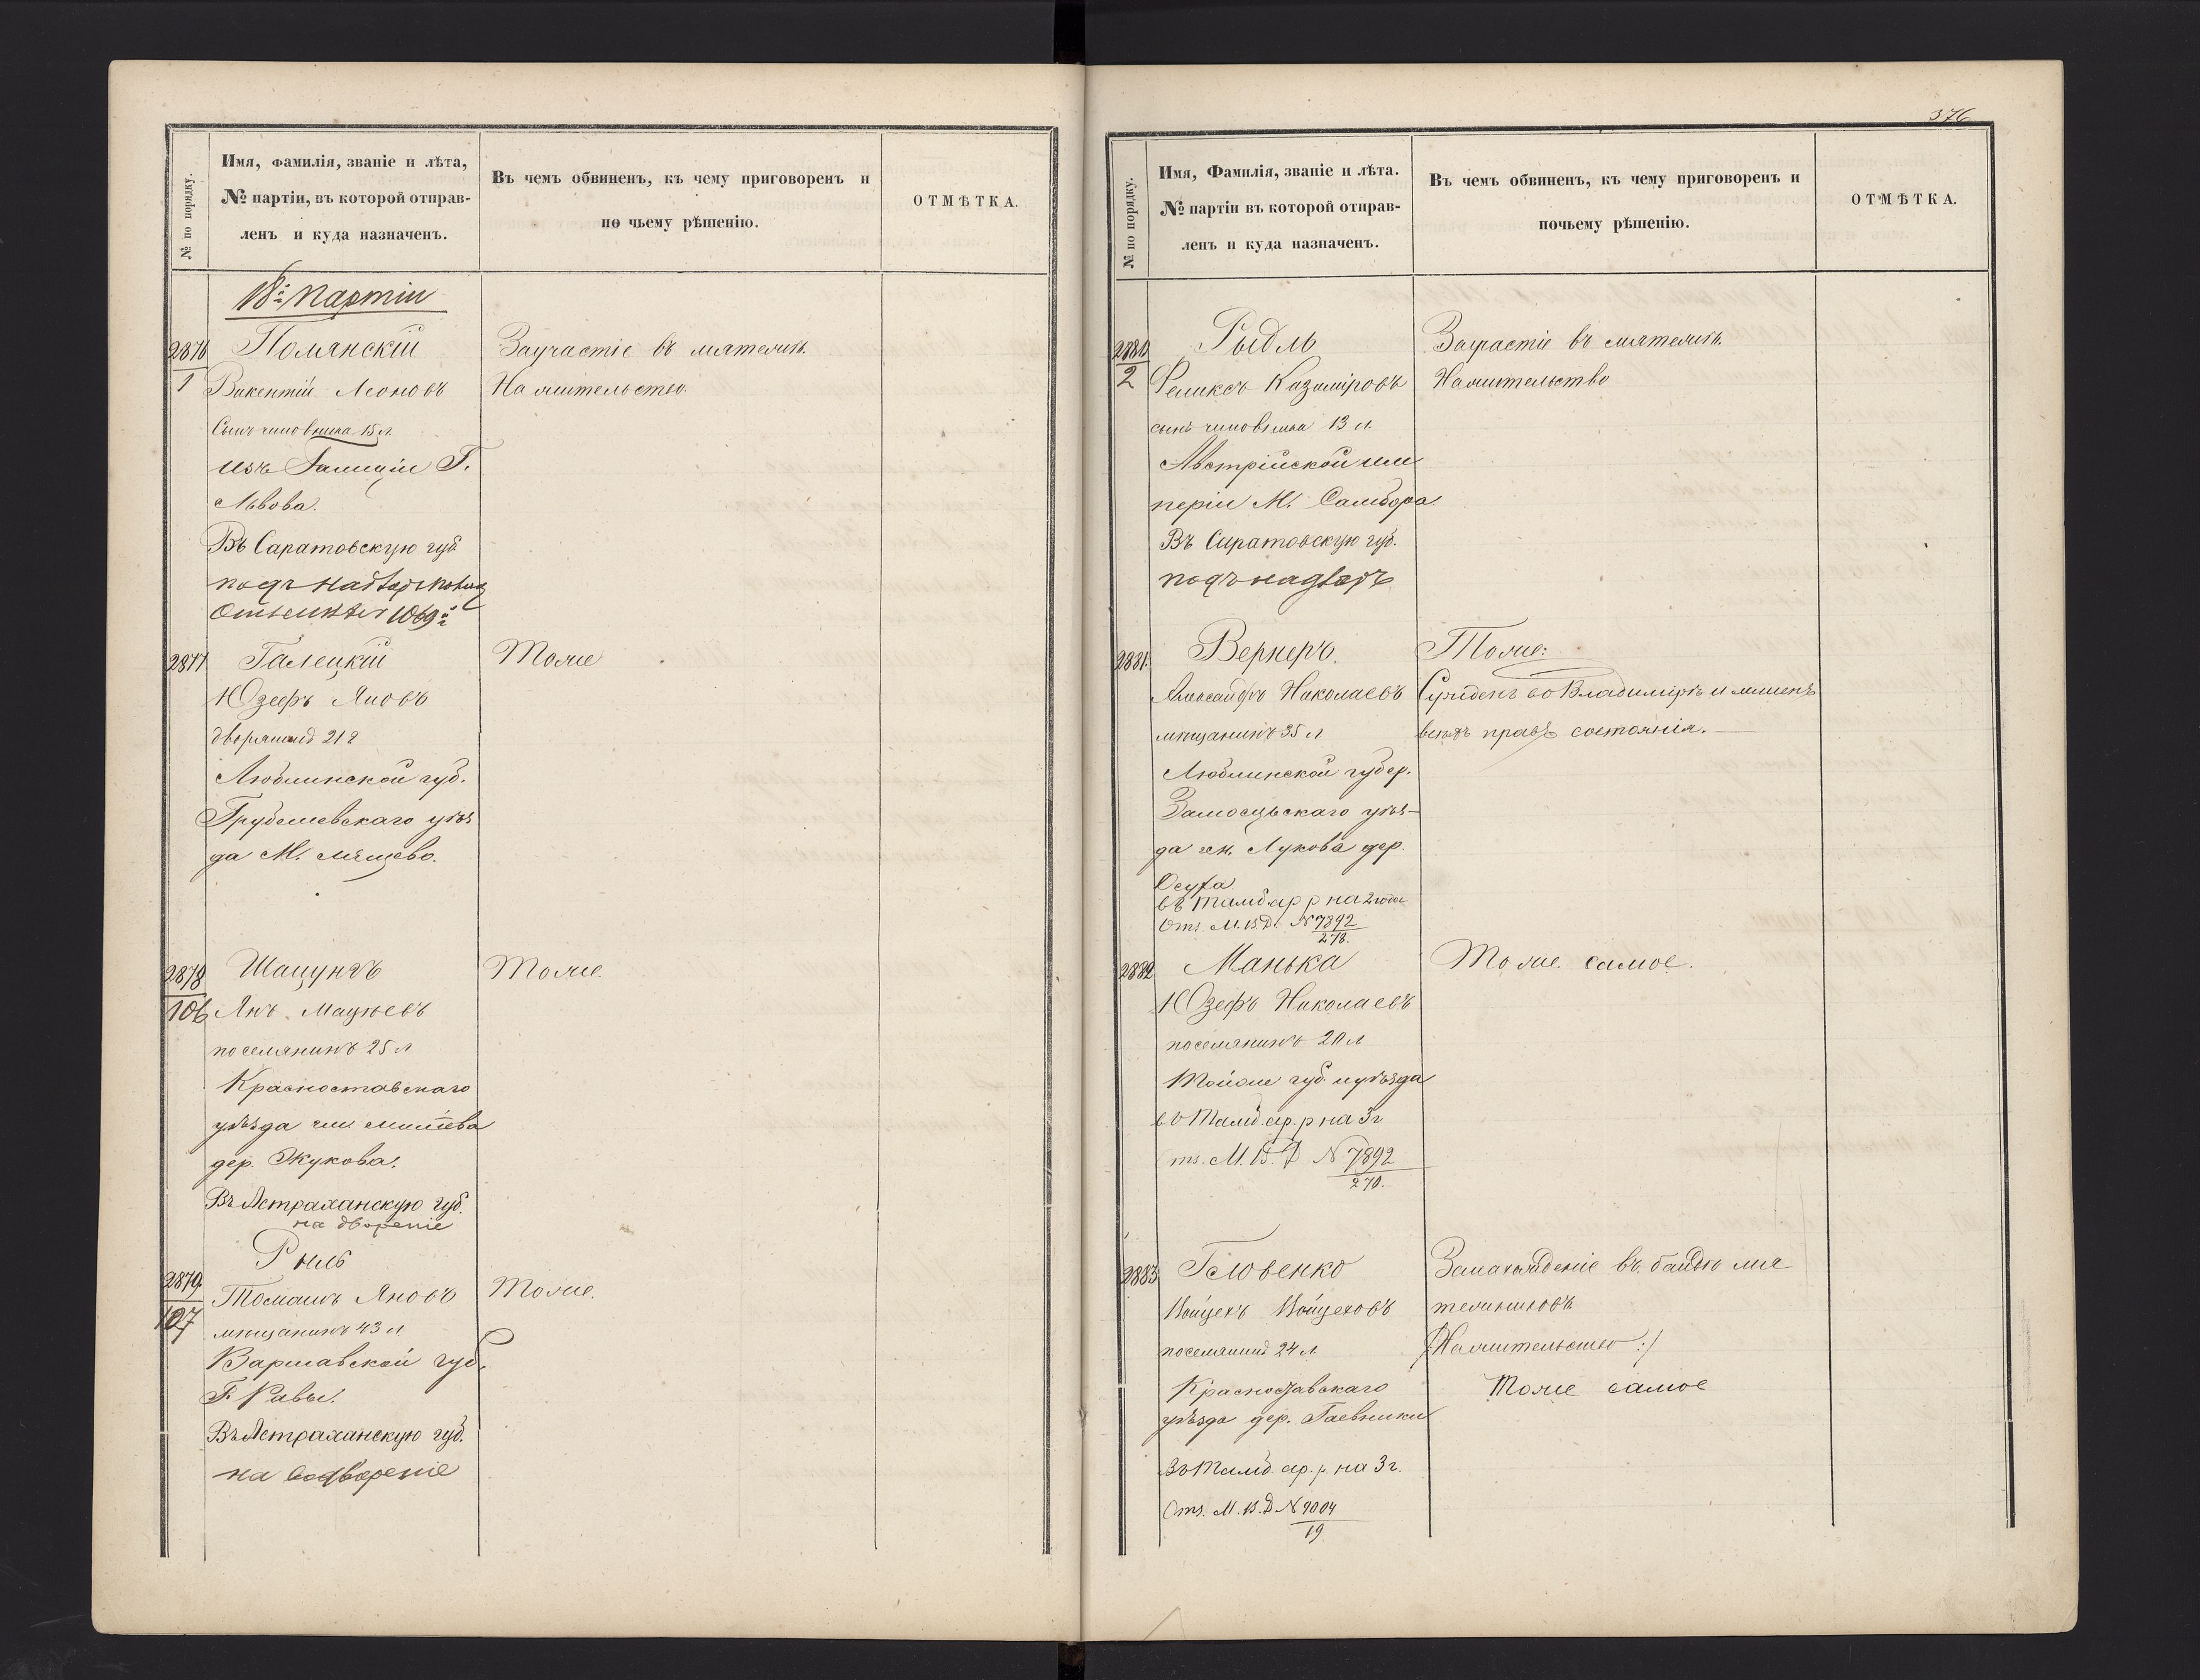 № по порядку.
Имя, Фамилія, званіе и лѣта,
№ партіи, въ которой отправ-
ленъ и куда назначенъ.
Въ чемъ обвиненъ, къ чему приговоренъ и
по чьему рѣшенію.
ОТМѢТКА.
18й партіи
2876
1
Полянскій
Викентій Леоновъ
Сынъ чиновника 15 л.
изъ Галиціи Г.
Львова.
Въ Саратовскую губ
подъ надзоръ
1069
За участіе въ мятежѣ.
На жительство
2877
Галецкій
Юзефъ Яновъ
дворянинъ 21 г
Люблинской губ.
Грубешевскаго уѣз
да М.
Тоже
2878
106
Шацунгъ
Янъ Мацѣевъ
поселянинъ 25 л
Красноставскаго
уѣзда гми
дер. Жукова.
Въ Астраханскую губ.
на двореніе
Тоже
2879
107
Рыль
Томашъ Яновъ
мѣщанинъ 43 л
Варшавской губ.
Г. Равы.
Въ Астраханскую губ.
на водвореніе
Тоже.
376
№ по порядку.
Имя, Фамилія, званіе и лѣта.
№ партіи въ которой отправ-
ленъ и куда назначенъ.
Въ чемъ обвиненъ, къ чему приговоренъ и
почьему рѣшенію.
ОТМѢТКА.
2880
2
Рыдль
Феликсъ Казиміровъ
сынъ чиновника 13 л.
Австрійской им
періи М. Самбора.
Въ Саратовскую губ.
подъ надзоръ
За участіе въ мятежѣ.
На жительство
2881.
Вернеръ.
Александръ Николаевъ
мѣщанинъ 35 л
Люблинской губер.
Замосцьскаго уѣз-
да гм. Лукова дер.
Осуха.
въ Тамб. ар р на 2 года
Отз. М.В.Д. № 7892
278.
Тоже:
Сужденъ во Владимірѣ и лишенъ
всѣхъ правъ состоянія.
2882
Манька
Юзефъ Николаевъ
поселянинъ 20 л
Тойже губ. и уѣзда
въ Тамб. ар. р на 3 г
тз. М.В.Д № 7892
270.
Тоже самое.
2883
Гловенко
Войцехъ Войцеховъ
поселянинъ 24 л
Красноставскаго
уѣзда дер. Гаевники
Въ Тамб. ар. р на 3 г.
Отз. М.В.Д № 9004
19
За нахожденіе въ бандѣ мя
тежниковъ
/:На жительство:/
Тоже самое